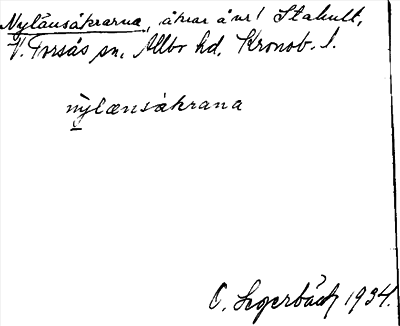 Nylånsåkrarna, åkrar å nr1 Stakult,
V. Torsås sn, Allbo hd, Kronob. l.
nylænsåkrana
O. Segerbäck 1934.